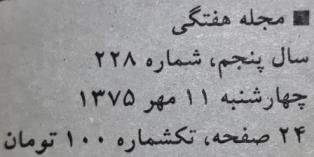 ■ مجله هفتگی
سال پنجم، شماره ۲۲۸
چهارشنبه ۱۱ مهر ۱۳۷۵
۲۴ صفحه، تکشماره ۱۰۰ تومان